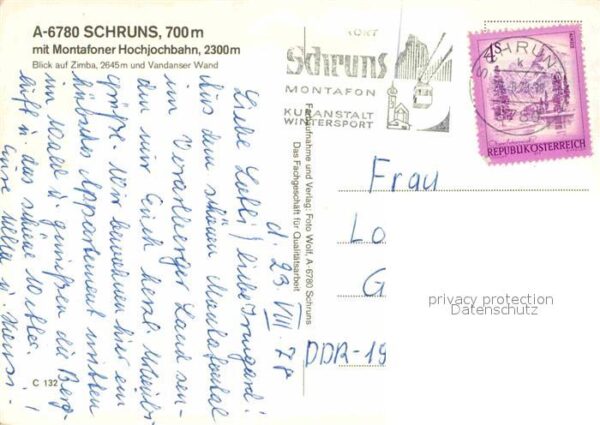 A-6780 SCHRUNS, 700 m
mit Montafoner Hochjochbahn, 2300 m
Blick auf Zimba, 2645 m und Vandanser Wand
Schruns
MONTAFON
KURANSTALT
WINTERSPORT
SCHRUNS
6780
REPUBLIK ÖSTERREICH
d. 23. VIII. 78
Liebe Lotti, liebe Irmgard!
Aus dem schönen Montafontal
im Vorarlberger Land sen-
den wir Euch herzl. Urlaubs-
grüße. Wir bewohnen hier ein
hübsches Appartement mitten
im Wald u. genießen die Berg-
luft u. das schöne
Eure
Farbaufnahme und Verlag: Foto Wolf, A-6780 Schruns
Das Fachgeschäft für Qualitätsarbeit
Frau
Lo
G
DDR-19
privacy protection
Datenschutz
C 132